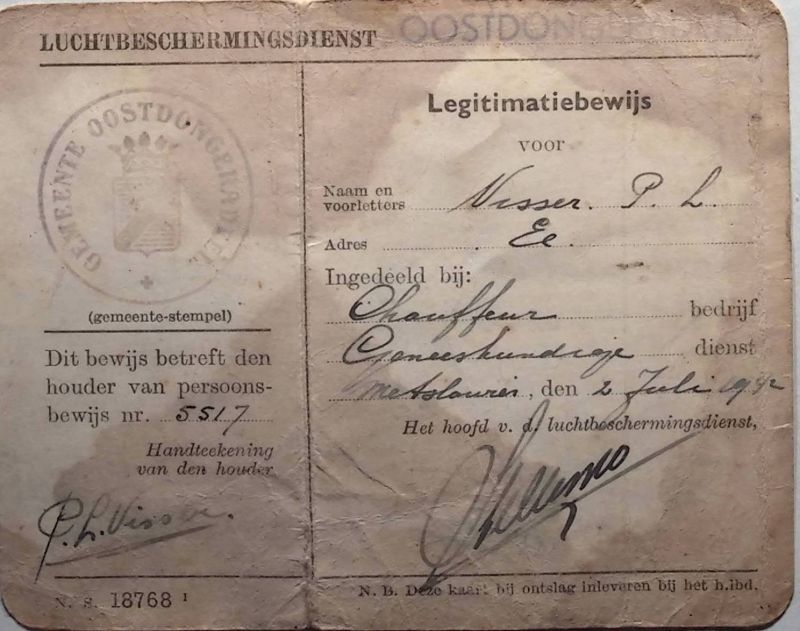 LUCHTBESCHERMINGSDIENST OOSTDONGERADEEL
GEMEENTE OOSTDONGERADEEL
(gemeente-stempel)
Dit bewijs betreft den
houder van persoons-
bewijs nr. 5517
Handteekening
van den houder
P. L. Visser.
N. S. 18768 1
Legitimatiebewijs
voor
Naam en
voorletters Visser. P. L.
Adres Ee.
Ingedeeld bij:
Chauffeur bedrijf
Geneeskundige dienst
Metslawier, den 2 Juli 1942
Het hoofd v. d. luchtbeschermingsdienst,
N. B. Deze kaart bij ontslag inleveren bij het h.lbd.